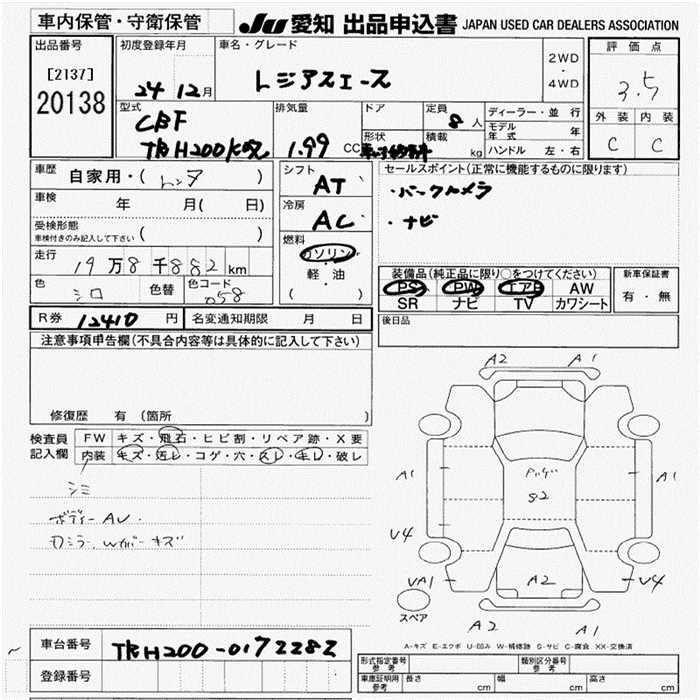 車内保管・守衛保管
JU 愛知 出品申込書 JAPAN USED CAR DEALERS ASSOCIATION
出品番号
[2137]
20138
初度登録年月
24 12月
車名・グレード
レジアスエース
2WD
・
4WD
評価点
3.5
外装 内装
C C
型式
CBF
TRH200K改
排気量
1.99 CC
ドア
形状
定員
8 人
積載
kg
ディーラー・並行
モデル年式 年
ハンドル 左・右
車歴
自家用・( レンタ )
車検
年 月( 日)
受検形態
車検付きのみ記入して下さい ( )
走行
19万8千882km
色
シロ
色替
色コード
058
シフト
AT
冷房
AC
燃料
ガソリン
軽・油
( )
セールスポイント(正常に機能するものに限ります)
・バックカメラ
・ナビ
装備品(純正品に限り○をつけてください)
PS PW エアB AW
SR ナビ TV カワシート
新車保証書
有・無
R券 12410 円
名変通知期限 月 日
後日品
注意事項申告欄(不具合内容等は具体的に記入して下さい)
修復歴 有 (箇所 )
検査員
記入欄
FW キズ・飛石・ヒビ割・リペア跡・X要
内装 キズ・汚レ・コゲ・穴・スレ・キレ・破レ
シミ
ボディー AU.
A2 A1
A1 A1
S2
U4
UA1 U4
A2
スペア
A2 A1
A-キズ E-エクボ U-凹み W-補修跡 S-サビ C-腐食 XX-交換済
車台番号
TRH200-0172282
登録番号
形式指定番号
参考
類別区分番号
参考
車庫証明用
参考
長さ cm
幅 cm
高さ cm